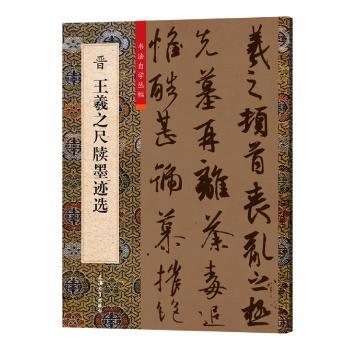 羲之頓首喪亂之極
先墓再離荼毒追
惟酷甚號慕摧絕
书法自学丛帖
晋 王羲之尺牍墨迹选